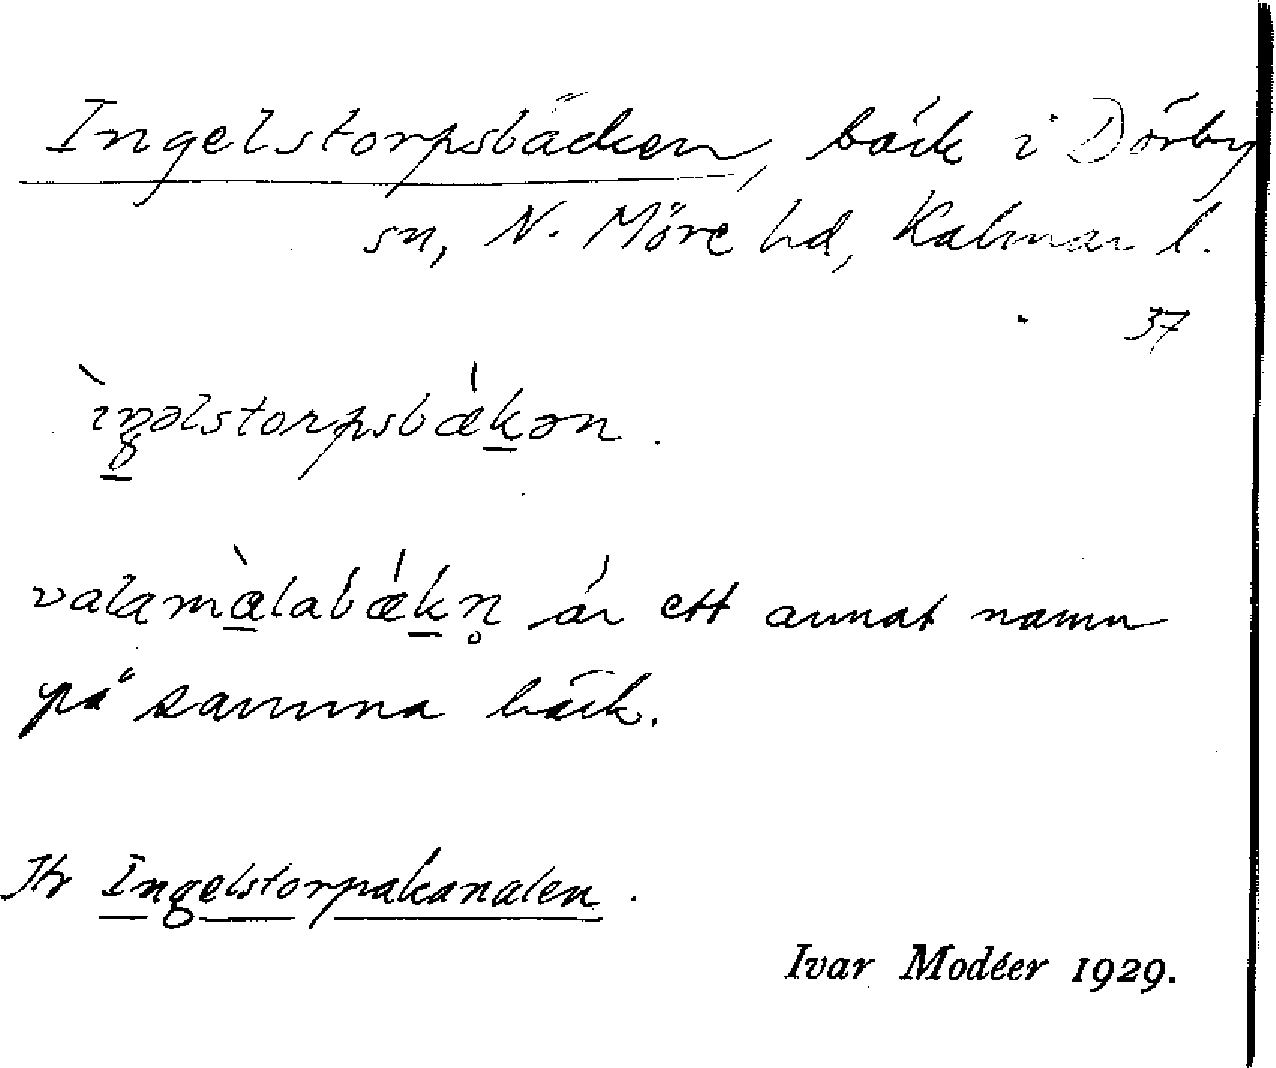 Ingelstorpsbäcken, bäck i Dörby
sn, N. Möre hd, Kalmar l.
37
ìŋəlstorpsbǽkən.
valamàlabǽkn̥ är ett annat namn
på samma bäck.
Jfr Ingelstorpakanalen.
Ivar Modéer 1929.